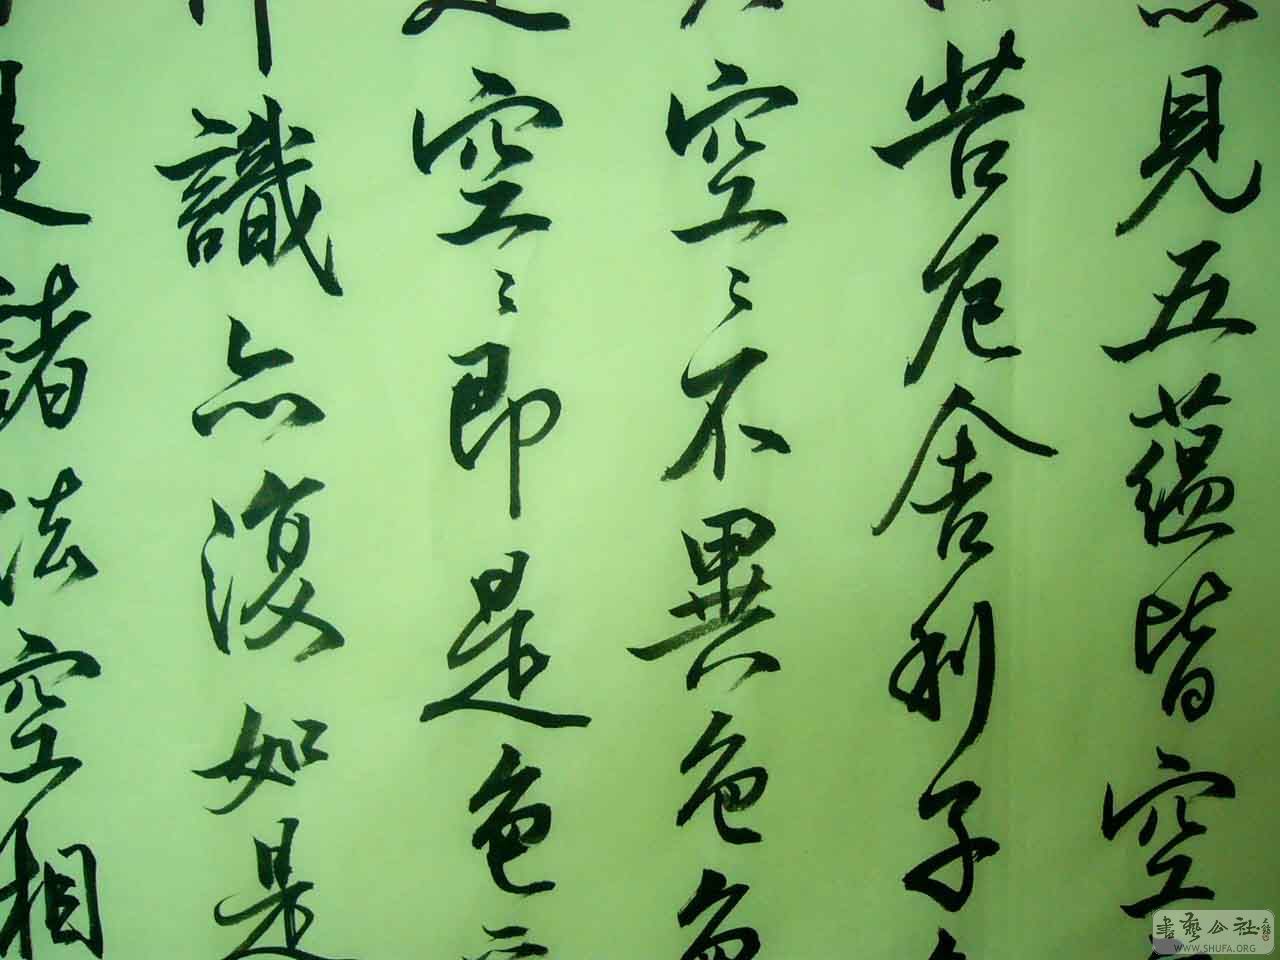 見五蘊皆空
苦厄舍利子
空〻不異色色
是空〻即是色
識亦復如是
是諸法空相
書藝公社
WWW.SHUFA.ORG